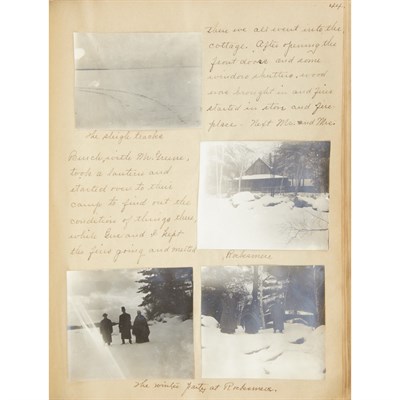 44.
there we all went into the
cottage. After opening the
front doors and some
window shutters, wood
was brought in and fires
started in stove and fire
place. Next Mr. and Mrs.
The sleigh tracks
Burch, with Mr. Greene,
took a lantern and
started over to their
camp to find out the
condition of things there,
while Gus and I kept
the fires going and melted
The winter party at